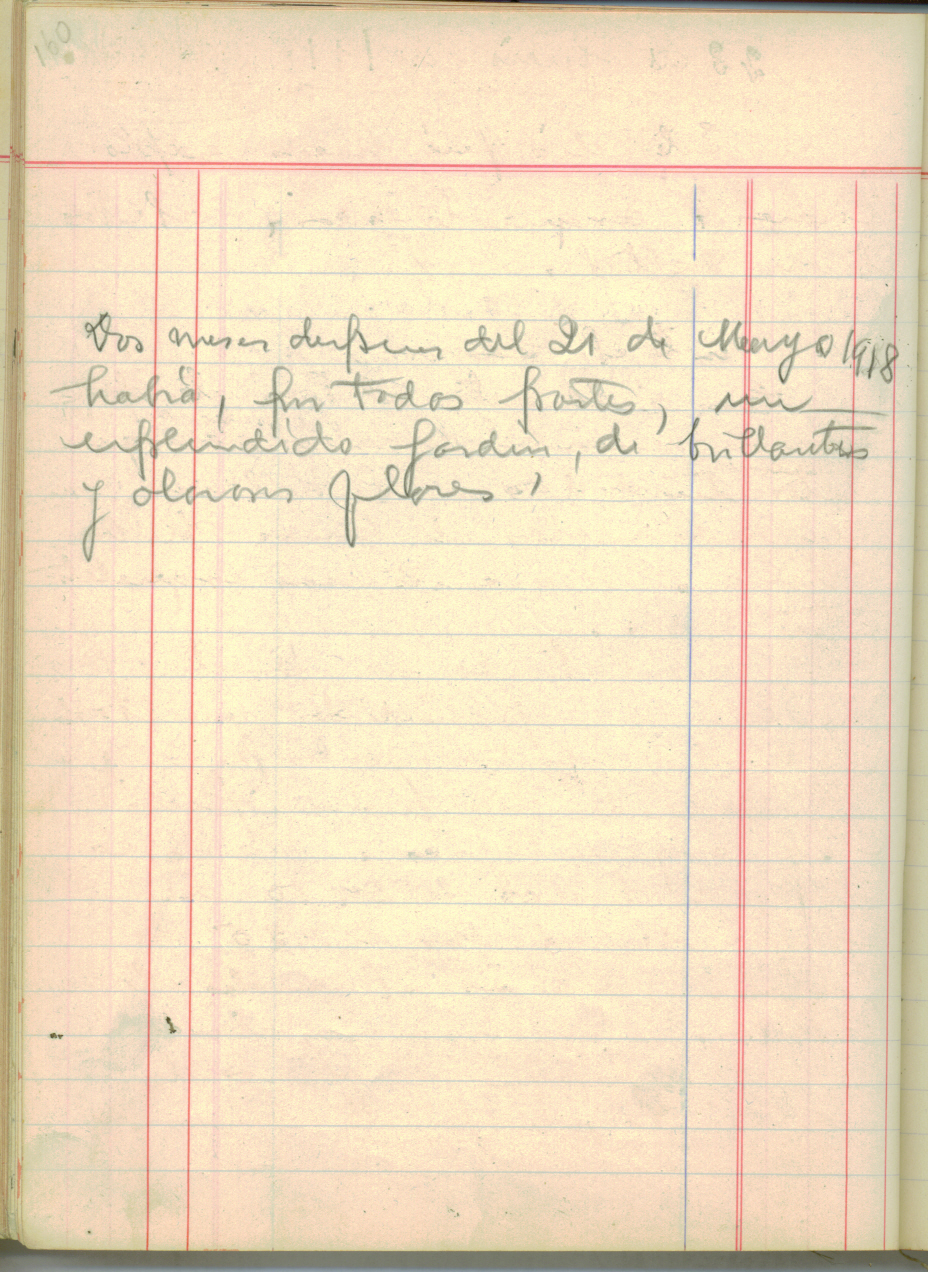 Dos meses despues del 21 de Mayo 1918
había, por todas partes, un
esplendido Jardin, de brillantes
y olorosas flores,